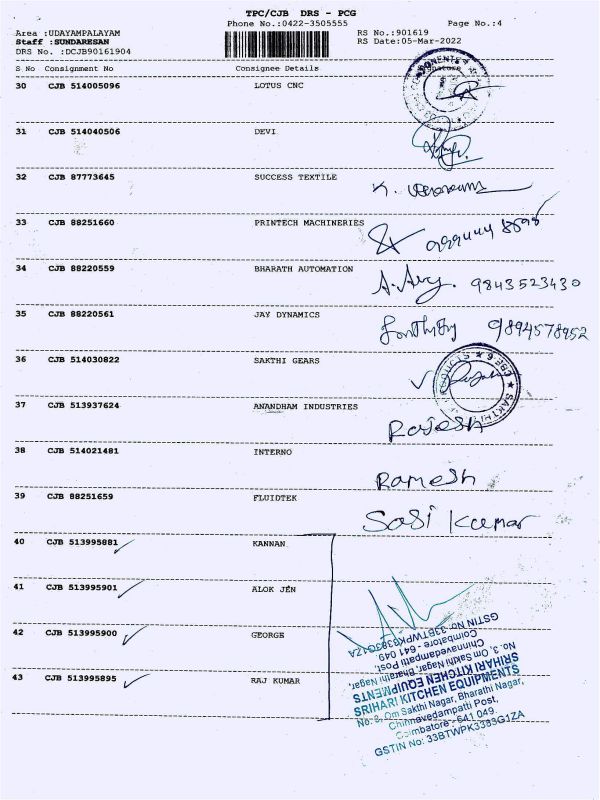 TPC/CJB DRS - PCG
Phone No.:0422-3505555
Page No.:4
Area :UDAYAMPALAYAM
RS No.:901619
Staff :SUNDARESAN
RS Date:05-Mar-2022
DRS No. :DCJB90161904
S No Consignment No Consignee Details Signature
30 CJB 514005096 LOTUS CNC
31 CJB 514040506 DEVI
32 CJB 87773645 SUCCESS TEXTILE
33 CJB 88251660 PRINTECH MACHINERIES
34 CJB 88220559 BHARATH AUTOMATION 9843523430
35 CJB 88220561 JAY DYNAMICS 9894578952
36 CJB 514030822 SAKTHI GEARS
37 CJB 513937624 ANANDHAM INDUSTRIES Rajesh
38 CJB 514021481 INTERNO Ramesh
39 CJB 88251659 FLUIDTEK Sasi Kumar
40 CJB 513995881 KANNAN
41 CJB 513995901 ALOK JEN
42 CJB 513995900 GEORGE
43 CJB 513995895 RAJ KUMAR
GSTIN No: 33BTWPK3383G1ZA
Coimbatore - 641 049.
Chinnavedampatti Post,
No. 3, Om Sakthi Nagar, Bharathi Nagar,
SRIHARI KITCHEN EQUIPMENTS
SRIHARI KITCHEN EQUIPMENTS
No: 3, Om Sakthi Nagar, Bharathi Nagar,
Chinnavedampatti Post,
Coimbatore - 641 049.
GSTIN No: 33BTWPK3383G1ZA